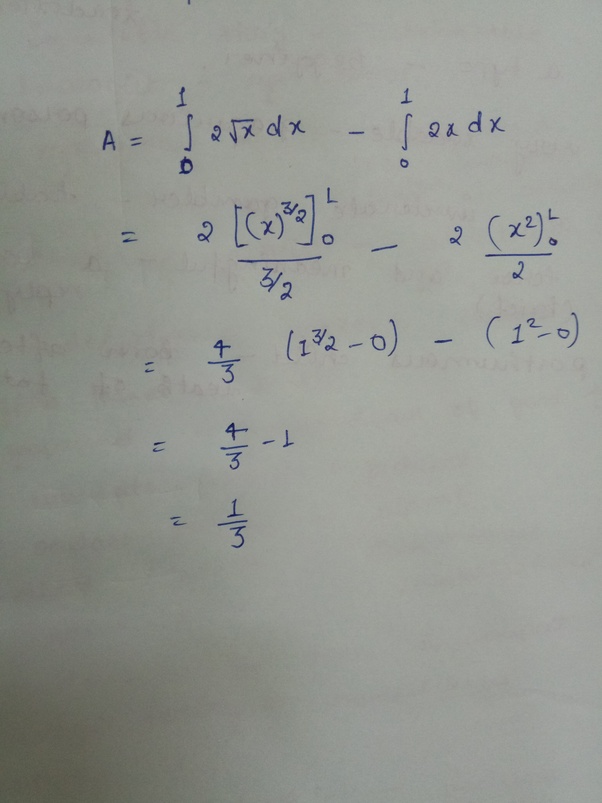 A = ∫₀¹ 2√x dx − ∫₀¹ 2x dx
= 2 [(x)^{3/2}]₀¹ / (3/2) − 2 (x²)₀¹ / 2
= 4/3 (1^{3/2} − 0) − (1² − 0)
= 4/3 − 1
= 1/3